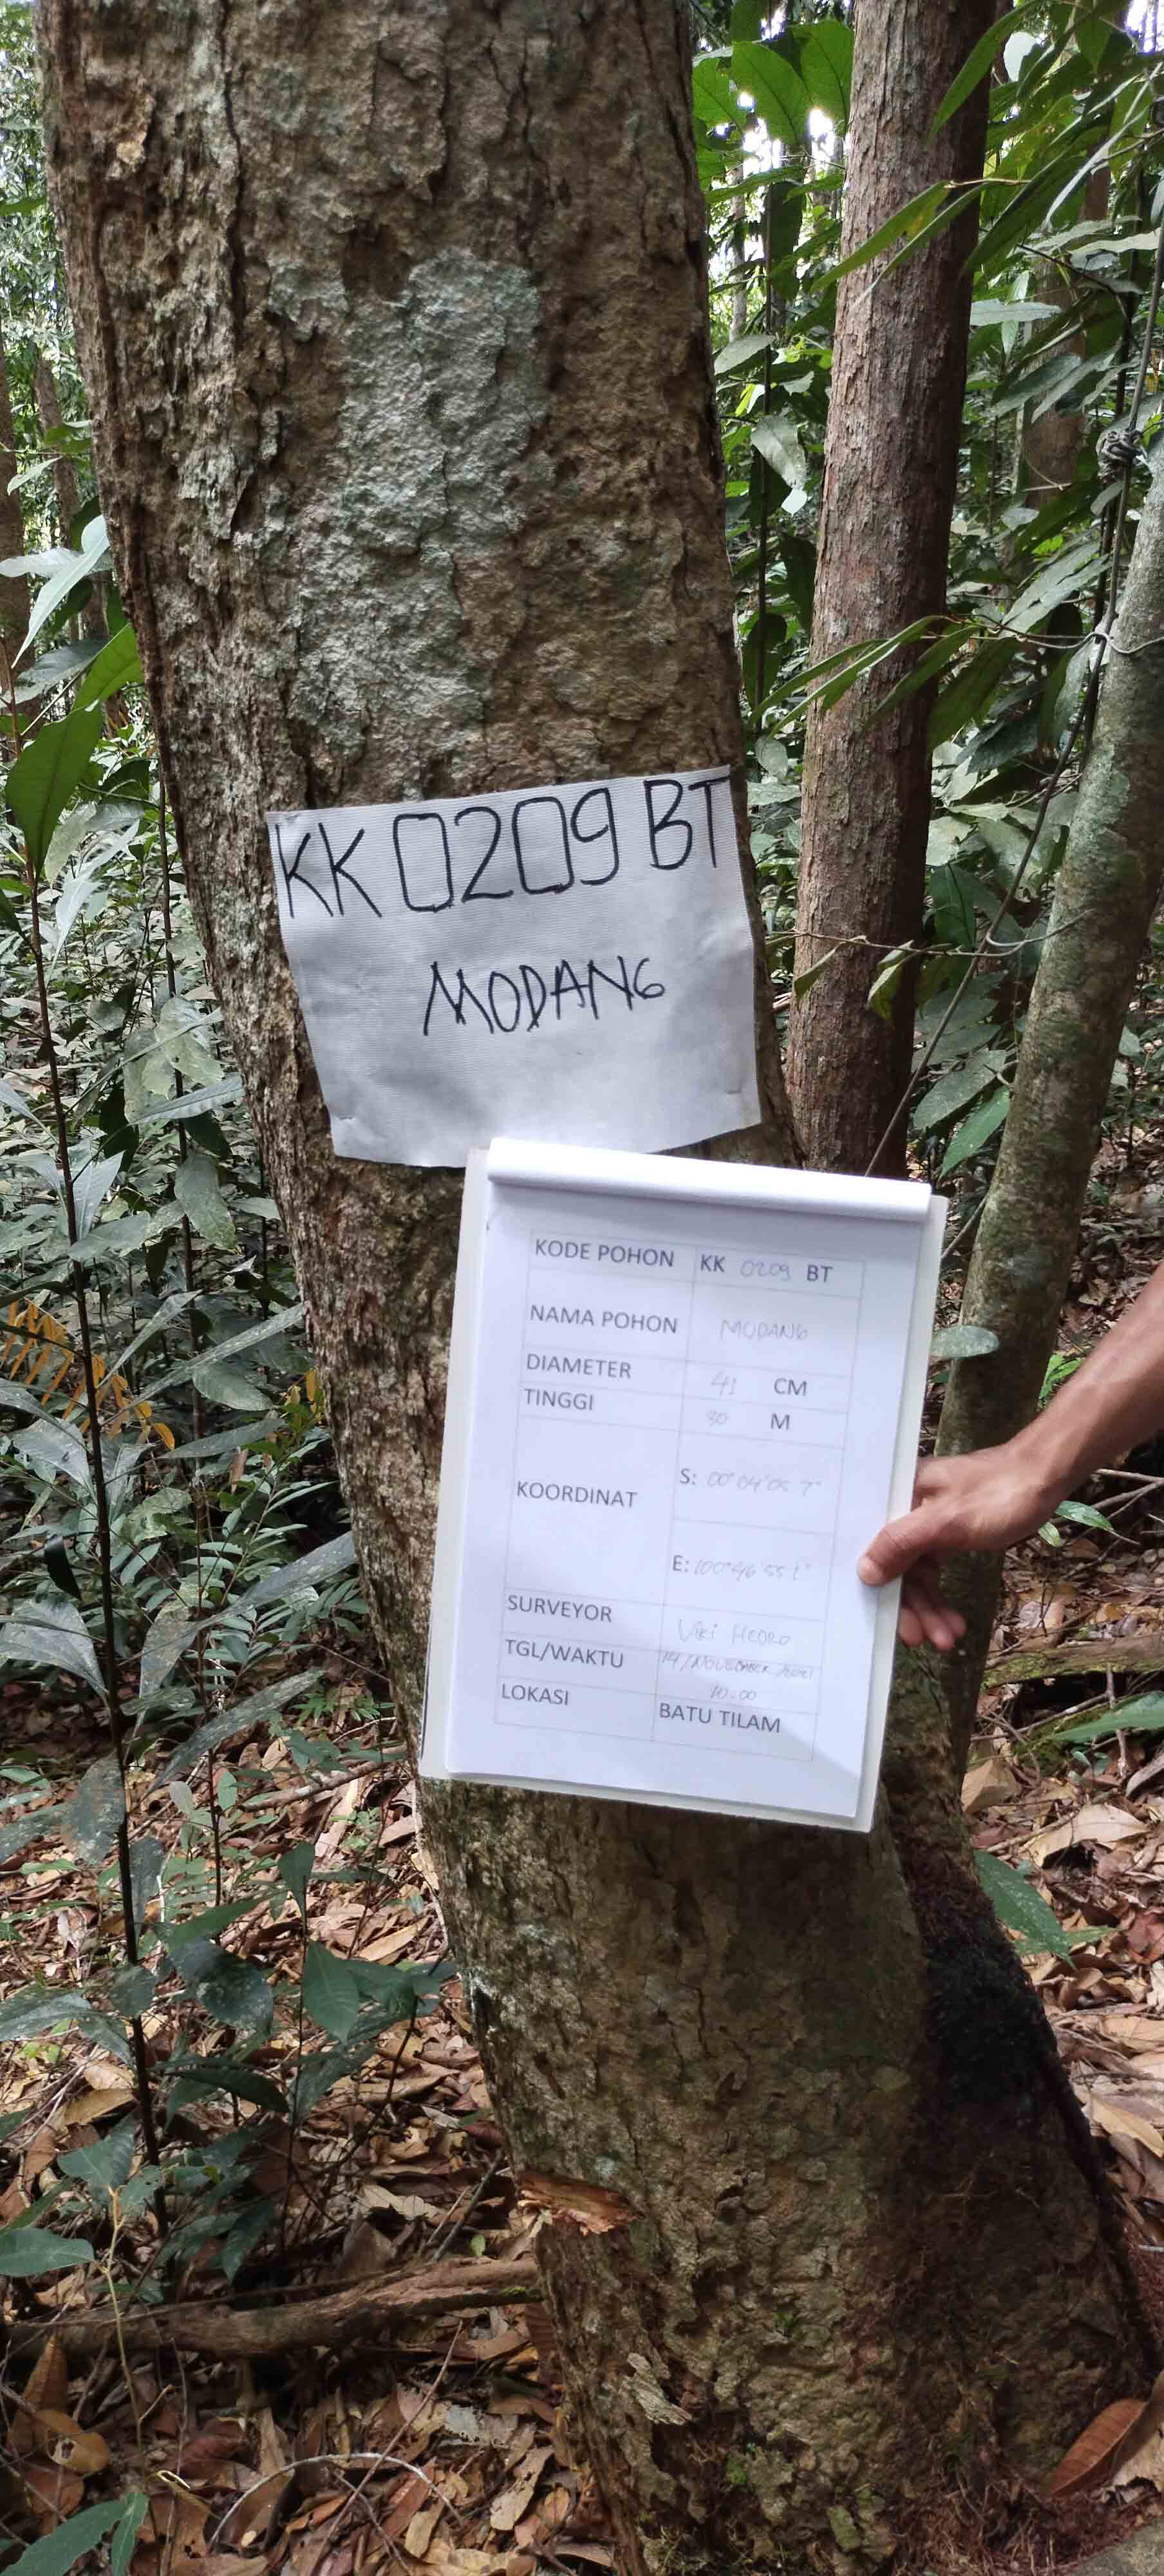 KK 0209 BT
MODANG
KODE POHON KK 0209 BT
NAMA POHON MODANG
DIAMETER 41 CM
TINGGI 30 M
KOORDINAT
S: 00°04'05 7"
E: 100°46'55
SURVEYOR Viki HEDRO
TGL/WAKTU 14/NOVEMBER/2021
10.00
LOKASI BATU TILAM